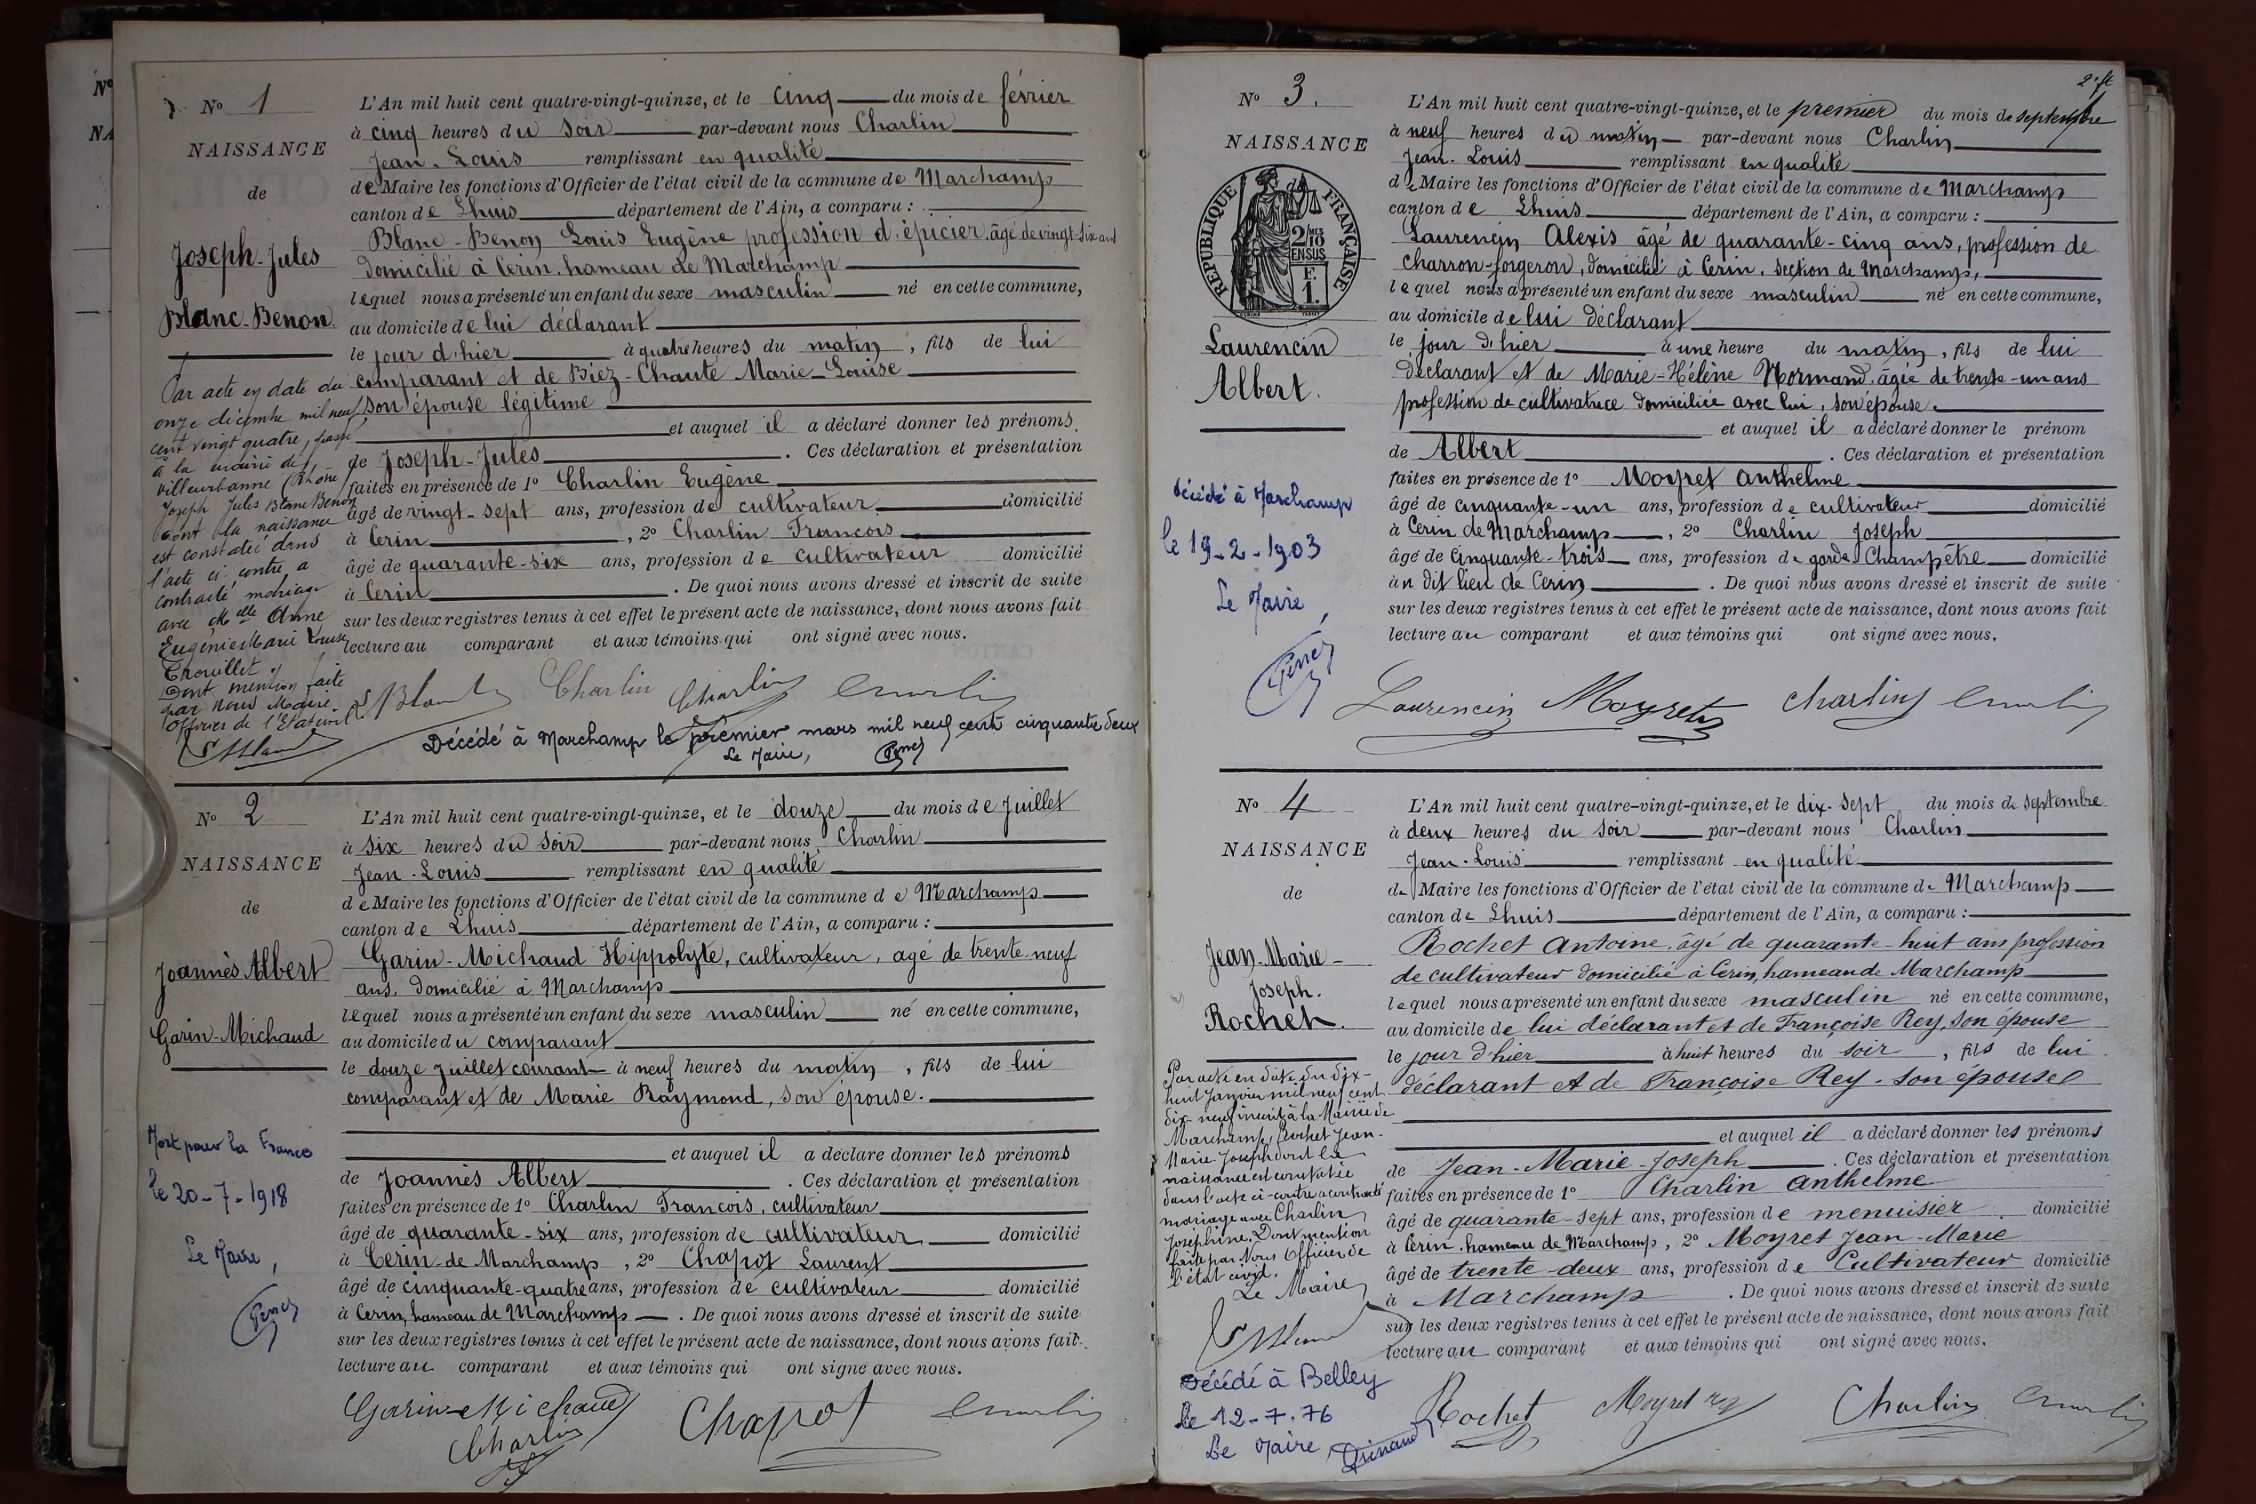 N° 1
NAISSANCE
de
Joseph-Jules
Blanc-Benon.
L'An mil huit cent quatre-vingt-quinze, et le cinq du mois de février
à cinq heures du soir par-devant nous Charlin
Jean-Louis remplissant en qualité
de Maire les fonctions d'Officier de l'état civil de la commune de Marchamp
canton de Lhuis département de l'Ain, a comparu :
Blanc-Benon Louis Eugène profession d'épicier, âgé de vingt-six ans
domicilié à Cerin, hameau de Marchamp
lequel nous a présenté un enfant du sexe masculin né en cette commune,
au domicile de lui déclarant
le jour d'hier à quatre heures du matin, fils de lui
comparant et de Biez-Chauté Marie-Louise
son épouse légitime
et auquel il a déclaré donner les prénoms
de Joseph-Jules. Ces déclaration et présentation
faites en présence de 1° Charlin Eugène
âgé de vingt-sept ans, profession de cultivateur domicilié
à Cerin, 2° Charlin Francois
âgé de quarante-six ans, profession de cultivateur domicilié
à Cerin. De quoi nous avons dressé et inscrit de suite
sur les deux registres tenus à cet effet le présent acte de naissance, dont nous avons fait
lecture au comparant et aux témoins qui ont signé avec nous.
Par acte en date du
onze décembre mil neuf
cent vingt quatre, passé
à la mairie de
Villeurbanne (Rhône)
Joseph Jules Blanc Benon
dont la naissance
est constatée dans
l'acte ci-contre a
contracté mariage
avec Melle Anne
Eugénie Marie Louise
Thouillet.
Dont mention faite
par nous Maire.
Officier de l'Etat civil
Charlin Charlin Charlin
Décédé à Marchamp le premier mars mil neuf cent cinquante deux
Le Maire,
N° 2
NAISSANCE
de
Joannès Albert
Garin-Michaud
L'An mil huit cent quatre-vingt-quinze, et le douze du mois de Juillet
à six heures du soir par-devant nous Charlin
Jean-Louis remplissant en qualité
de Maire les fonctions d'Officier de l'état civil de la commune de Marchamp
canton de Lhuis département de l'Ain, a comparu :
Garin-Michaud Hippolyte, cultivateur, agé de trente-neuf
ans, domicilié à Marchamp
lequel nous a présenté un enfant du sexe masculin né en cette commune,
au domicile du comparant
le douze Juillet courant à neuf heures du matin, fils de lui
comparant et de Marie Raymond, son épouse.
et auquel il a déclare donner les prénoms
de Joannès Albert. Ces déclaration et présentation
faites en présence de 1° Charlin Francois, cultivateur
âgé de quarante-six ans, profession de cultivateur domicilié
à Cerin de Marchamp, 2° Chapot Laurent
âgé de cinquante-quatre ans, profession de cultivateur domicilié
à Cerin, hameau de Marchamp. De quoi nous avons dressé et inscrit de suite
sur les deux registres tenus à cet effet le présent acte de naissance, dont nous avons fait
lecture au comparant et aux témoins qui ont signé avec nous.
Mort pour la France
le 20-7-1918
Le Maire,
Garin-Michaud
Charlin
Chapot Charlin
2e ft
N° 3.
NAISSANCE
de
REPUBLIQUE FRANÇAISE
2/10 MES
EN SUS
F.
1.
Laurencin
Albert.
L'An mil huit cent quatre-vingt-quinze, et le premier du mois de septembre
à neuf heures du matin par-devant nous Charlin
Jean-Louis remplissant en qualité
de Maire les fonctions d'Officier de l'état civil de la commune de Marchamp
canton de Lhuis département de l'Ain, a comparu :
Laurencin Alexis âgé de quarante-cinq ans, profession de
charron-forgeron, domicilié à Cerin, section de Marchamp,
lequel nous a présenté un enfant du sexe masculin né en cette commune,
au domicile de lui déclarant
le jour d'hier à une heure du matin, fils de lui
déclarant et de Marie-Hélène Normand, âgée de trente-un ans
profession de cultivatrice domiciliée avec lui, son épouse.
et auquel il a déclaré donner le prénom
de Albert. Ces déclaration et présentation
faites en présence de 1° Moyret Anthelme
âgé de cinquante-un ans, profession de cultivateur domicilié
à Cerin de Marchamp, 2° Charlin Joseph
âgé de cinquante-trois ans, profession de garde Champêtre domicilié
au dit lieu de Cerin. De quoi nous avons dressé et inscrit de suite
sur les deux registres tenus à cet effet le présent acte de naissance, dont nous avons fait
lecture au comparant et aux témoins qui ont signé avec nous.
Décédé à Marchamp
le 19-2-1903
Le Maire,
Laurencin Moyret Charlin Charlin
N° 4
NAISSANCE
de
Jean-Marie-
Joseph.
Rochet.
L'An mil huit cent quatre-vingt-quinze, et le dix-sept du mois de septembre
à deux heures du soir par-devant nous Charlin
Jean-Louis remplissant en qualité
de Maire les fonctions d'Officier de l'état civil de la commune de Marchamp
canton de Lhuis département de l'Ain, a comparu :
Rochet Antoine, âgé de quarante-huit ans profession
de cultivateur domicilié à Cerin, hameau de Marchamp
lequel nous a présenté un enfant du sexe masculin né en cette commune,
au domicile de lui déclarant et de Françoise Rey, son épouse
le jour d'hier à huit heures du soir, fils de lui
déclarant et de Françoise Rey-son épouse
et auquel il a déclaré donner les prénoms
de Jean-Marie-Joseph. Ces déclaration et présentation
faites en présence de 1° Charlin Anthelme
âgé de quarante-sept ans, profession de menuisier domicilié
à Cerin, hameau de Marchamp, 2° Moyret Jean-Marie
âgé de trente-deux ans, profession de Cultivateur domicilié
à Marchamp. De quoi nous avons dressé et inscrit de suite
sur les deux registres tenus à cet effet le présent acte de naissance, dont nous avons fait
lecture au comparant et aux témoins qui ont signé avec nous.
Par acte en date du dix-
huit Janvier mil neuf cent
dix-neuf inscrit à la Mairie de
Marchamp, Rochet Jean-
Marie-Joseph dont la
naissance est constatée
dans l'acte ci-contre a contracté
mariage avec Charlin
Joséphine. Dont mention
faite par Nous Officier de
l'état civil.
Le Maire
Décédé à Belley
le 12-7-76
Le Maire
Rochet Moyret Charlin Charlin